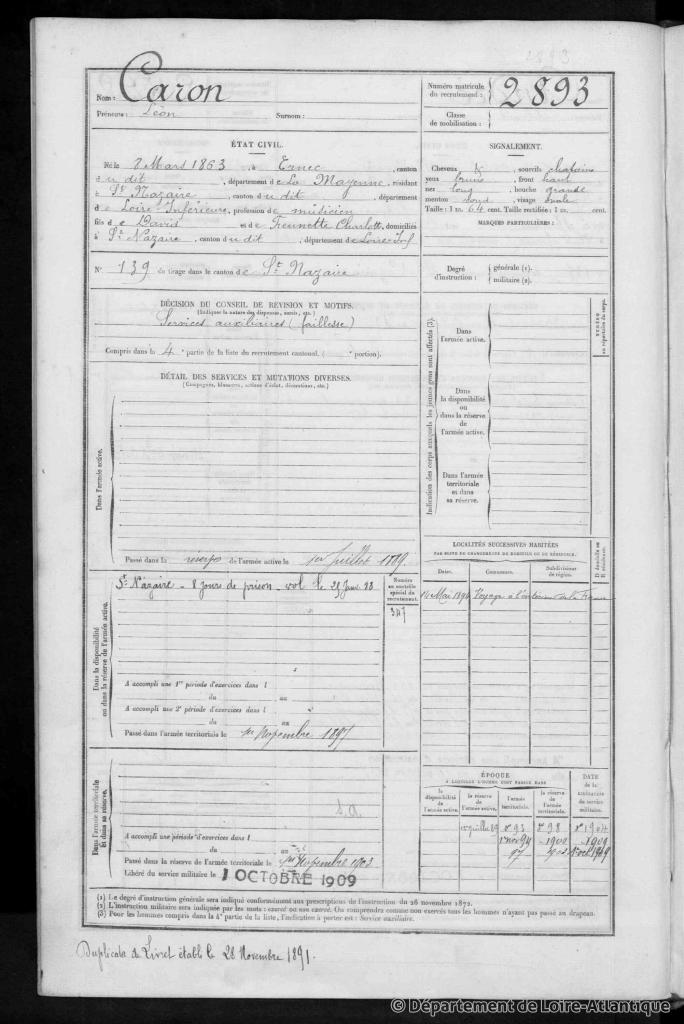 Nom : Caron
Prénoms : Léon Surnom :
Numéro matricule du recrutement : 2893
Classe de mobilisation :
ÉTAT CIVIL.
Né le 8 Mars 1863, à Ernée, canton
du dit, département de La Mayenne, résidant
à St Nazaire, canton du dit, département
de Loire-Inférieure, profession de musicien
fils de David et de Charlotte, domiciliés
à St Nazaire, canton du dit, département de Loire-Inf
N° 139 de tirage dans le canton de St Nazaire
SIGNALEMENT.
Cheveux & sourcils chatains
yeux bruns, front haut
nez long, bouche grande
menton rond, visage ovale
Taille : 1 m. 64 cent. Taille rectifiée : 1 m. cent.
MARQUES PARTICULIÈRES :
Degré d'instruction : générale (1).
militaire (2).
DÉCISION DU CONSEIL DE RÉVISION ET MOTIFS.
(Indiquer la nature des dispenses, sursis, etc.)
Services auxiliaires (faiblesse)
Compris dans la 4e partie de la liste du recrutement cantonal. ( portion).
DÉTAIL DES SERVICES ET MUTATIONS DIVERSES.
(Campagnes, blessures, actions d'éclat, décorations, etc.)
Dans l'armée active.
Passé dans la réserve de l'armée active le 1er Juillet 1889.
Indication des corps auxquels les jeunes gens sont affectés (3).
Dans l'armée active.
Dans la disponibilité ou dans la réserve de l'armée active.
Dans l'armée territoriale et dans sa réserve.
NUMÉRO au répertoire du corps.
Dans la disponibilité ou dans la réserve de l'armée active.
St Nazaire - 8 jours de prison - vol le
Numéro au contrôle spécial du recrutement.
347
A accompli une 1re période d'exercices dans l
du au
A accompli une 2e période d'exercices dans l
du au
Passé dans l'armée territoriale le 1er Novembre 1897
LOCALITÉS SUCCESSIVES HABITÉES
PAR SUITE DE CHANGEMENTS DE DOMICILE OU DE RÉSIDENCE.
D domicile ou R résidence.
Dates. Communes. Subdivisions de région.
14 Mai 1894 Voyage à l'intérieur de la France
Dans l'armée territoriale et dans sa réserve.
S.A.
A accompli une période d'exercices dans l
du au
Passé dans la réserve de l'armée territoriale le 1er Novembre 1903
Libéré du service militaire le 1 OCTOBRE 1909
ÉPOQUE
A LAQUELLE L'HOMME DOIT PASSER DANS
DATE de la libération du service militaire.
la disponibilité de l'armée active. la réserve de l'armée active. l'armée territoriale. la réserve de l'armée territoriale.
1er juillet 89 93 98 1904
1er nov 94 1900 1909
97
(1) Le degré d'instruction générale sera indiqué conformément aux prescriptions de l'instruction du 26 novembre 1872.
(2) L'instruction militaire sera indiquée par les mots : exercé ou non exercé. On comprendra comme non exercés tous les hommes n'ayant pas passé au drapeau.
(3) Pour les hommes compris dans la 4e partie de la liste, l'indication à porter est : Service auxiliaire.
Duplicata de Livret établi le 28 Novembre 1891.
© Département de Loire-Atlantique